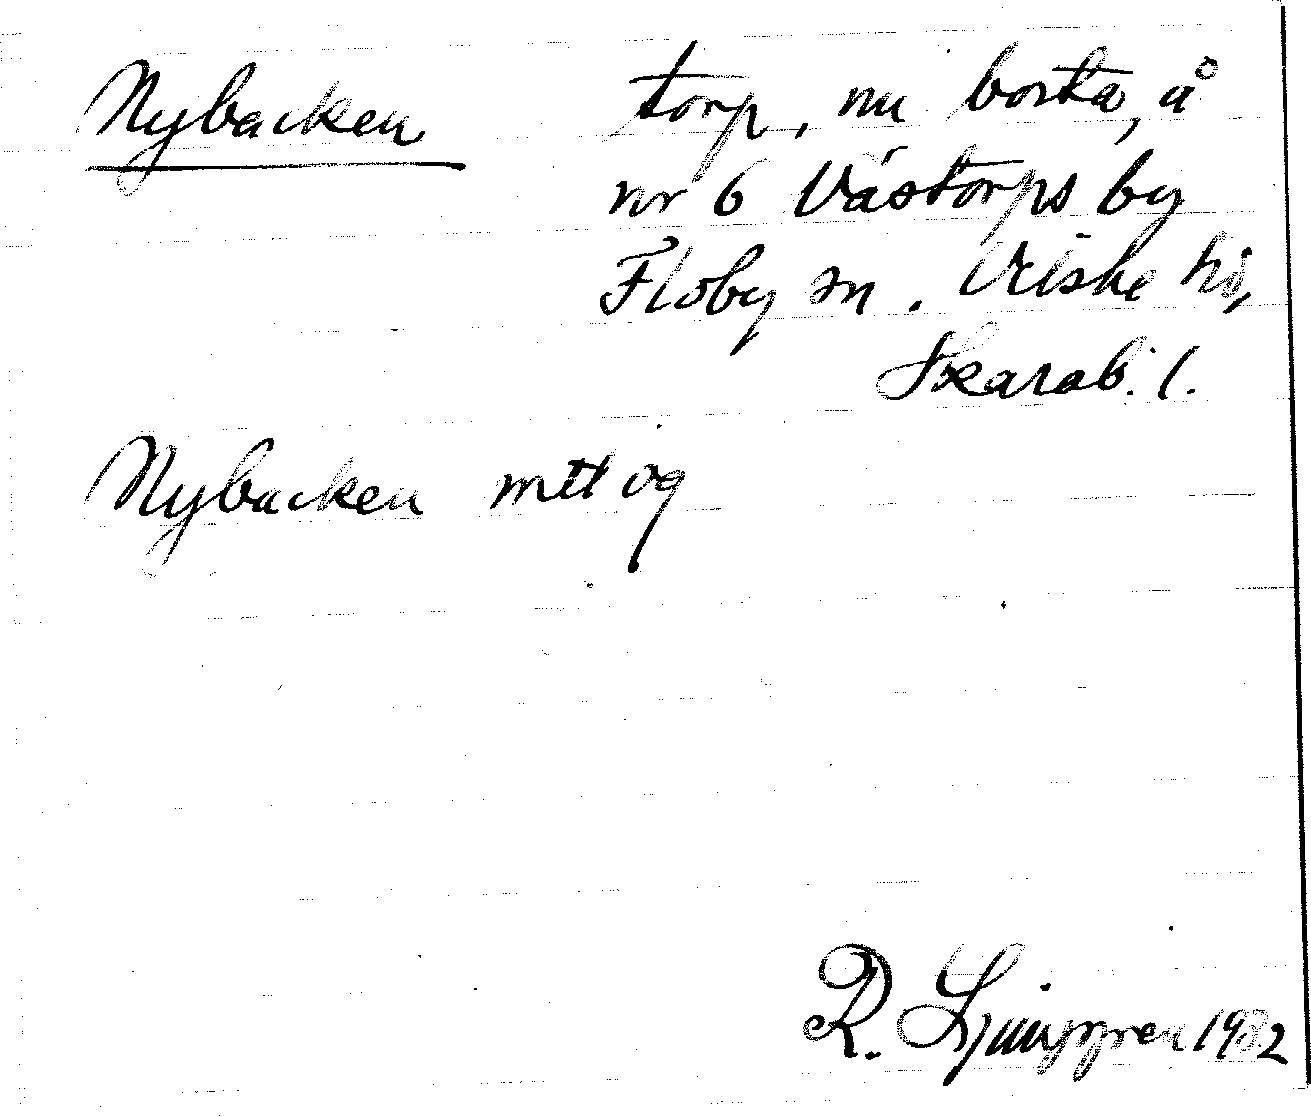 Nybacken torp, nu borta, å
nr 6 Västorps by
Floby sn. Vilske hd,
Skarab. l.
Nybacken mtt og
R. Ljunggren 1932